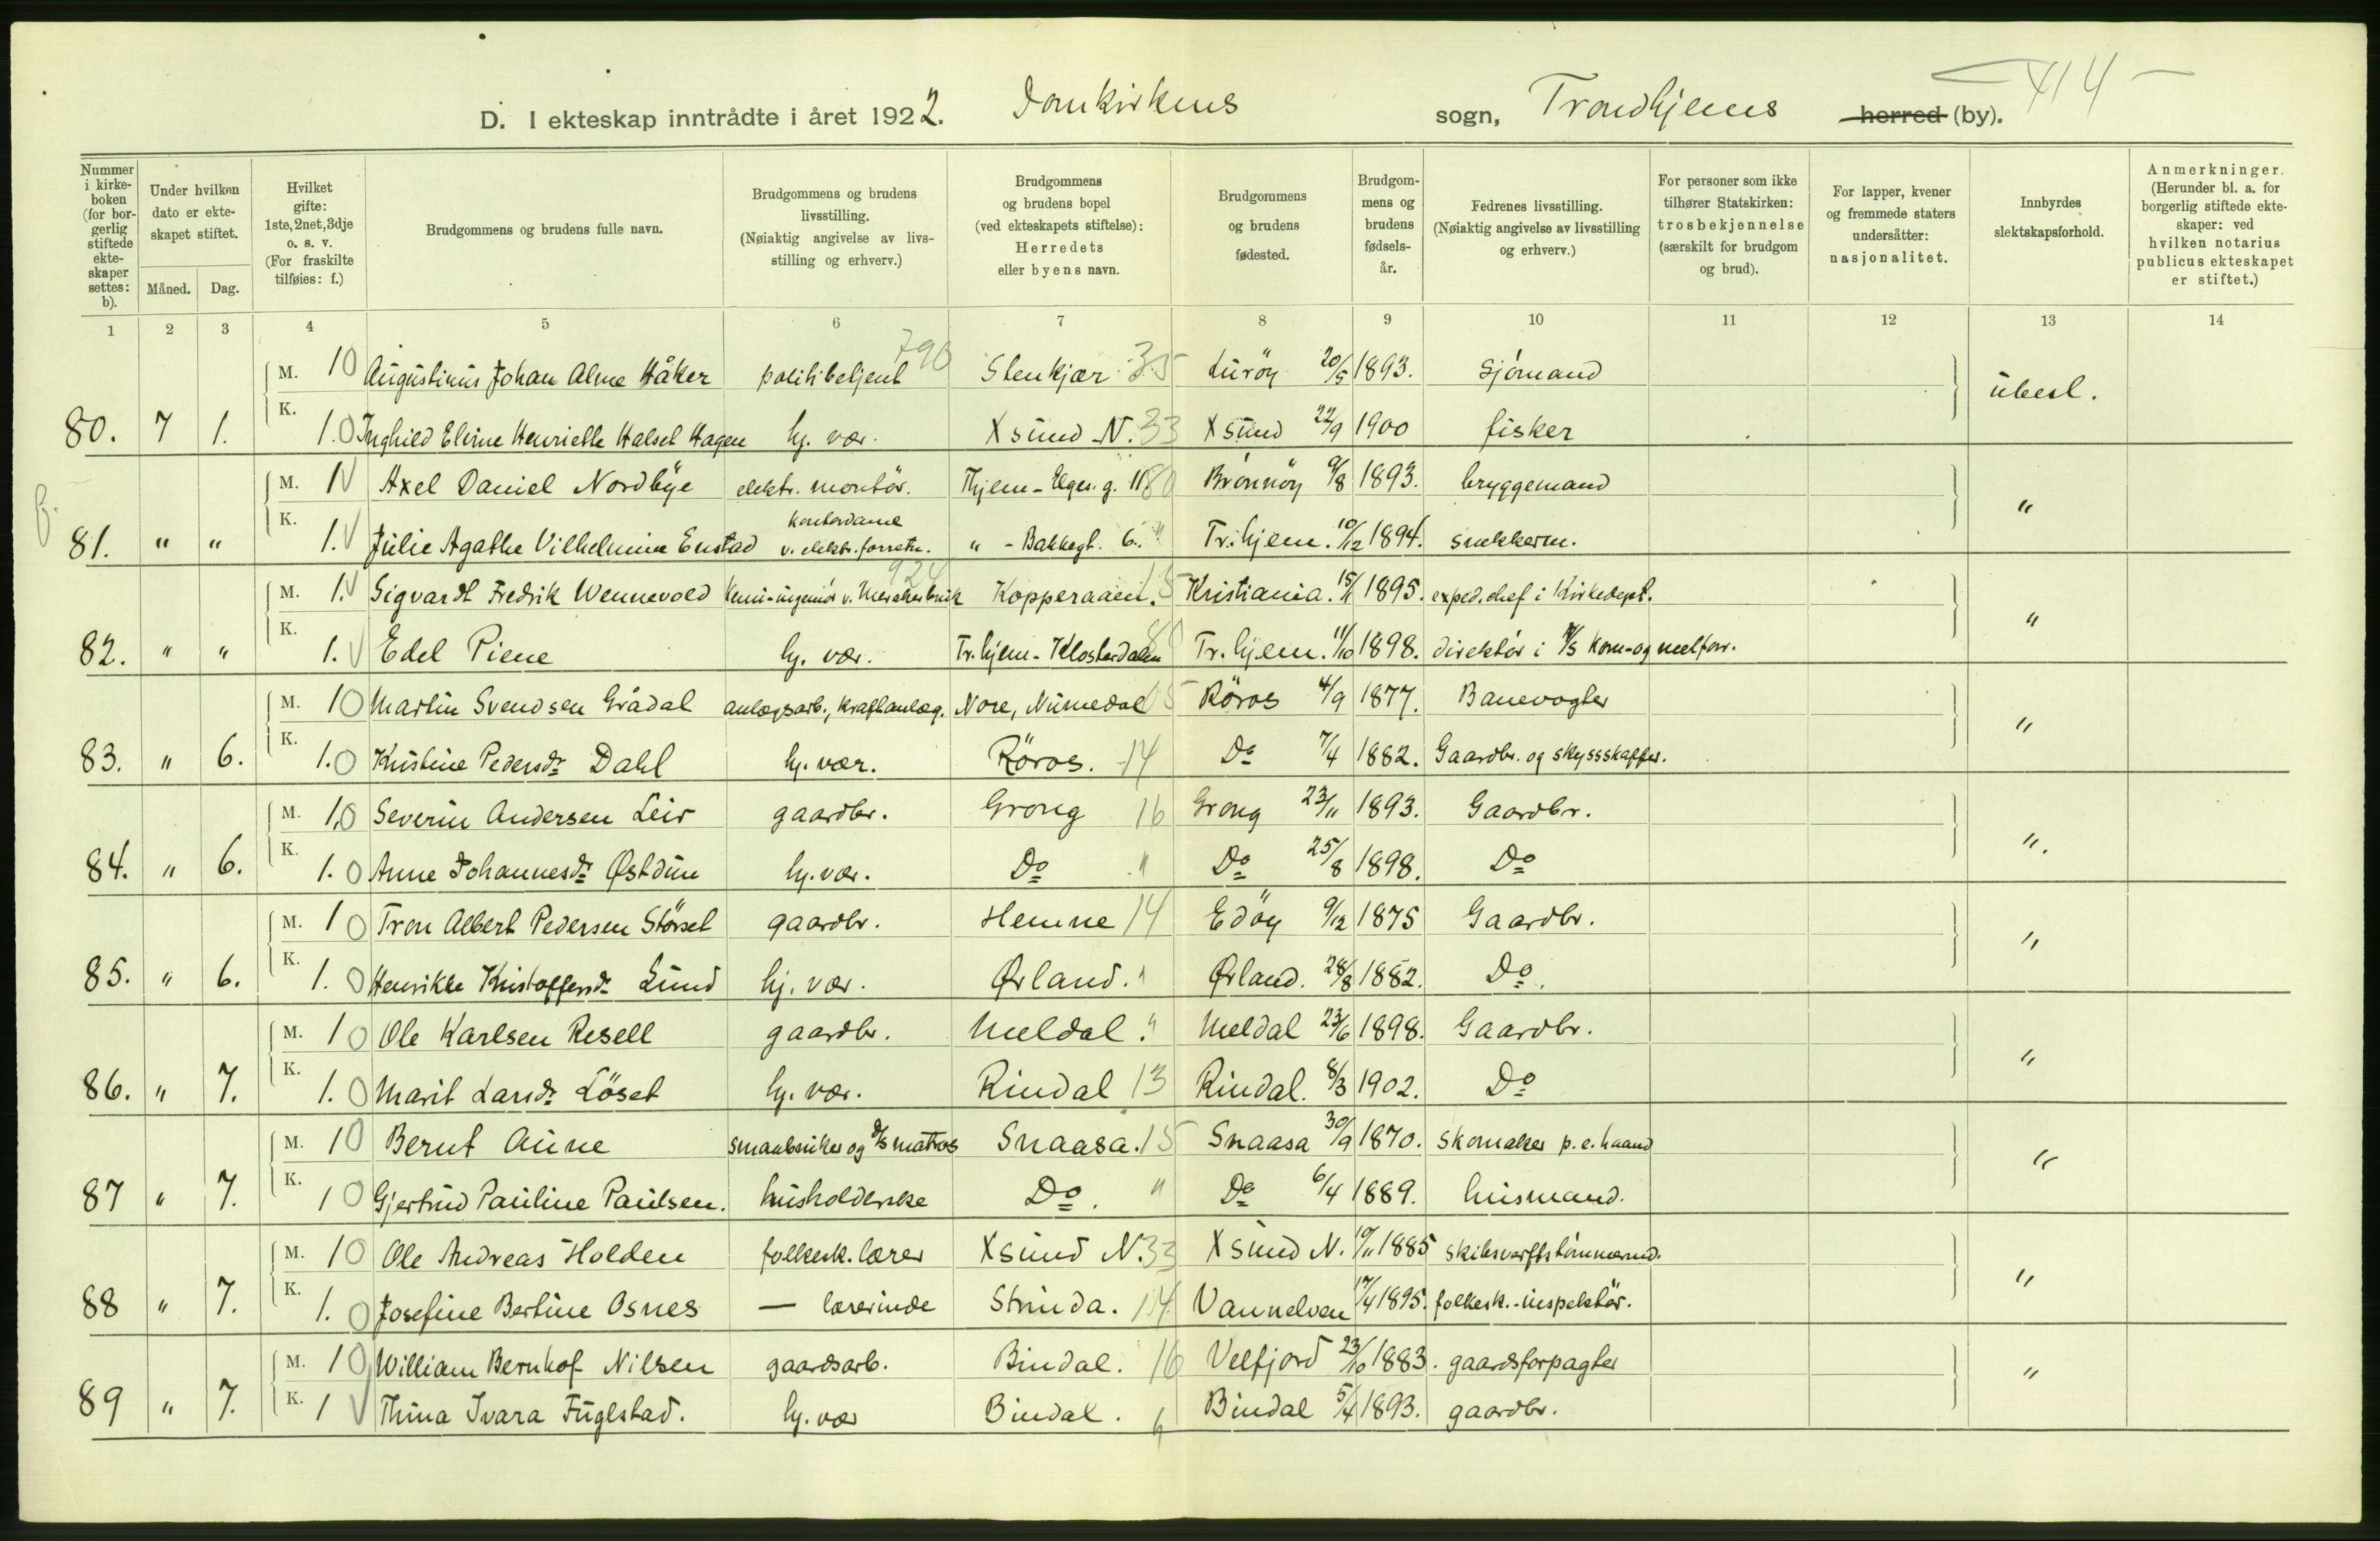 414
D. I ekteskap inntrådte i året 1922. Domkirkens sogn, Trondhjems herred (by).
Nummer i kirkeboken (for borgerlig stiftede ekteskaper settes: b).
Under hvilken dato er ekteskapet stiftet.
Måned. Dag.
Hvilket gifte: 1ste, 2net, 3dje o. s. v. (For fraskilte tilføies: f.)
Brudgommens og brudens fulle navn.
Brudgommens og brudens livsstilling. (Nøiaktig angivelse av livsstilling og erhverv.)
Brudgommens og brudens bopel (ved ekteskapets stiftelse): Herredets eller byens navn.
Brudgommens og brudens fødested.
Brudgommens og brudens fødselsår.
Fedrenes livsstilling. (Nøiaktig angivelse av livsstilling og erhverv.)
For personer som ikke tilhører Statskirken: trosbekjennelse (særskilt for brudgom og brud).
For lapper, kvener og fremmede staters undersåtter: nasjonalitet.
Innbyrdes slektskapsforhold.
Anmerkninger. (Herunder bl. a. for borgerlig stiftede ekteskaper: ved hvilken notarius publicus ekteskapet er stiftet.)
1 2 3 4 5 6 7 8 9 10 11 12 13 14
M. 10 Augustinus Johan Alme Håker politibetjent 790 Stenkjær 35 Luröy 20/5 1893. Sjømand ubesl.
80. 7 1. K. 1.0 Inghild Elvine Henriette Halset Hagen hj. vær. Xsund N. 33 Xsund 22/9 1900 fisker
M. 1 Axel Daniel Nordbye elektr. montör. Thjem - Elges. g. 11 80 Brönnöy 9/8 1893. bryggemand "
81. " " K. 1. Julie Agathe Vilhelmine Enstad kontordame v. elektr. forretn. " - Bakkegt. 6. " Tr.hjem. 10/12 1894. snekkerm.
M. 1. Sigvardt Fredrik Wennevold Kemi-ingeniör v. Meraker bruk 924 Kopperaaen. 15 Kristiania. 15/1 1895. exped. chef i Kirkedept. "
82. " " K. 1. Edel Piene hj. vær. Tr.hjem - Klosterdalen 80 Tr.hjem. 11/10 1898. direktör i A/S Korn- og melforr.
M. 10 Martin Svendsen Grådal anlegsarb., kraftanlæg. Nore, Numedal 5 Röros 4/9 1877. Banevogter "
83. " 6. K. 1.0 Kristine Pedersdr Dahl hj. vær. Röros. 14 Do 7/4 1882. Gaardbr. og skyssskaffer.
M. 1.0 Severin Andersen Leir gaardbr. Grong 16 Grong 23/11 1893. Gaardbr. ".
84. " 6. K. 1.0 Anne Johannesdr Østdun hj. vær. Do " Do 25/8 1898. Do
M. 10 Tron Albert Pedersen Störset gaardbr. Hemne 14 Edöy 9/12 1875 Gaardbr. "
85. " 6. K. 1.0 Henrikke Kristoffersdr Lund hj. vær. Ørland. " Ørland. 28/8 1882. Do.
M. 10 Ole Karlsen Resell gaardbr. Meldal. " Meldal 23/6 1898. Gaardbr. "
86. " 7. K. 1.0 Marit Larsdr Löset hj. vær. Rindal 13 Rindal. 8/3 1902. Do
M. 10 Bernt Aune smaabruker og D/S matros Snaasa. 15 Snaasa 30/9 1870. Skomaker p. e. haand "
87 " 7. K. 10 Gjertrud Pauline Paulsen. husholderske Do. " Do 6/4 1889. husmand.
M. 10 Ole Andreas Holden folkesk. lærer Xsund N. 33 Xsund N. 10/11 1885 skibsverftstömmermd. "
88 " 7. K. 1.0 Josefine Bertine Osnes — lærerinde Strinda. 14. Vannelven 17/4 1895. folkesk.-inspektör.
M. 10 William Bernhof Nilsen gaardsarb. Bindal. 16 Velfjord 23/10 1883. gaardsforpagter "
89 " 7. K. 1 Thina Ivara Fuglstad. hj. vær Bindal. " Bindal 5/4 1893. gaardbr.